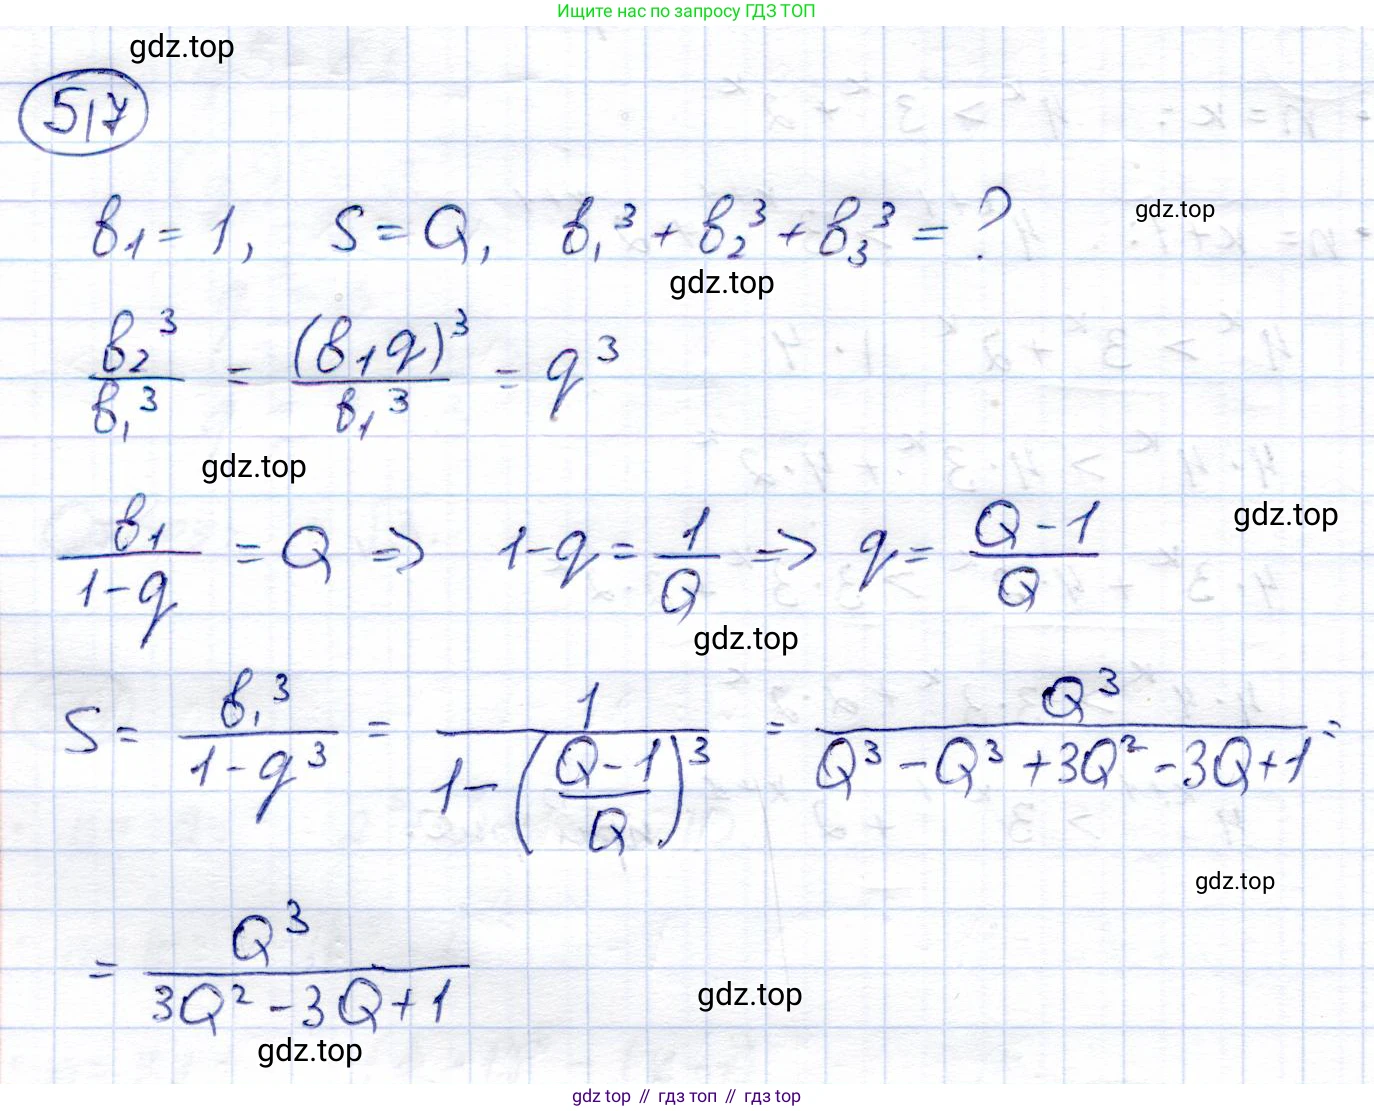 Ищите нас по запросу ГДЗ ТОП
gdz.top
517
b₁ = 1, S = Q, b₁³ + b₂³ + b₃³ = ?
gdz.top
gdz.top
b₂³/b₁³ = (b₁q)³/b₁³ = q³
gdz.top
gdz.top
b₁/(1-q) = Q => 1-q = 1/Q => q = (Q-1)/Q
gdz.top
S = b₁³/(1-q³) = 1/(1-((Q-1)/Q)³) = Q³/(Q³-Q³+3Q²-3Q+1) =
gdz.top
= Q³/(3Q²-3Q+1)
gdz.top
gdz.top
gdz top // гдз топ // гдз top